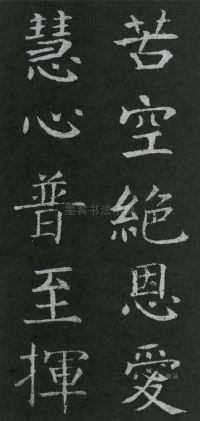 苦空絶恩愛
慧心普至揮